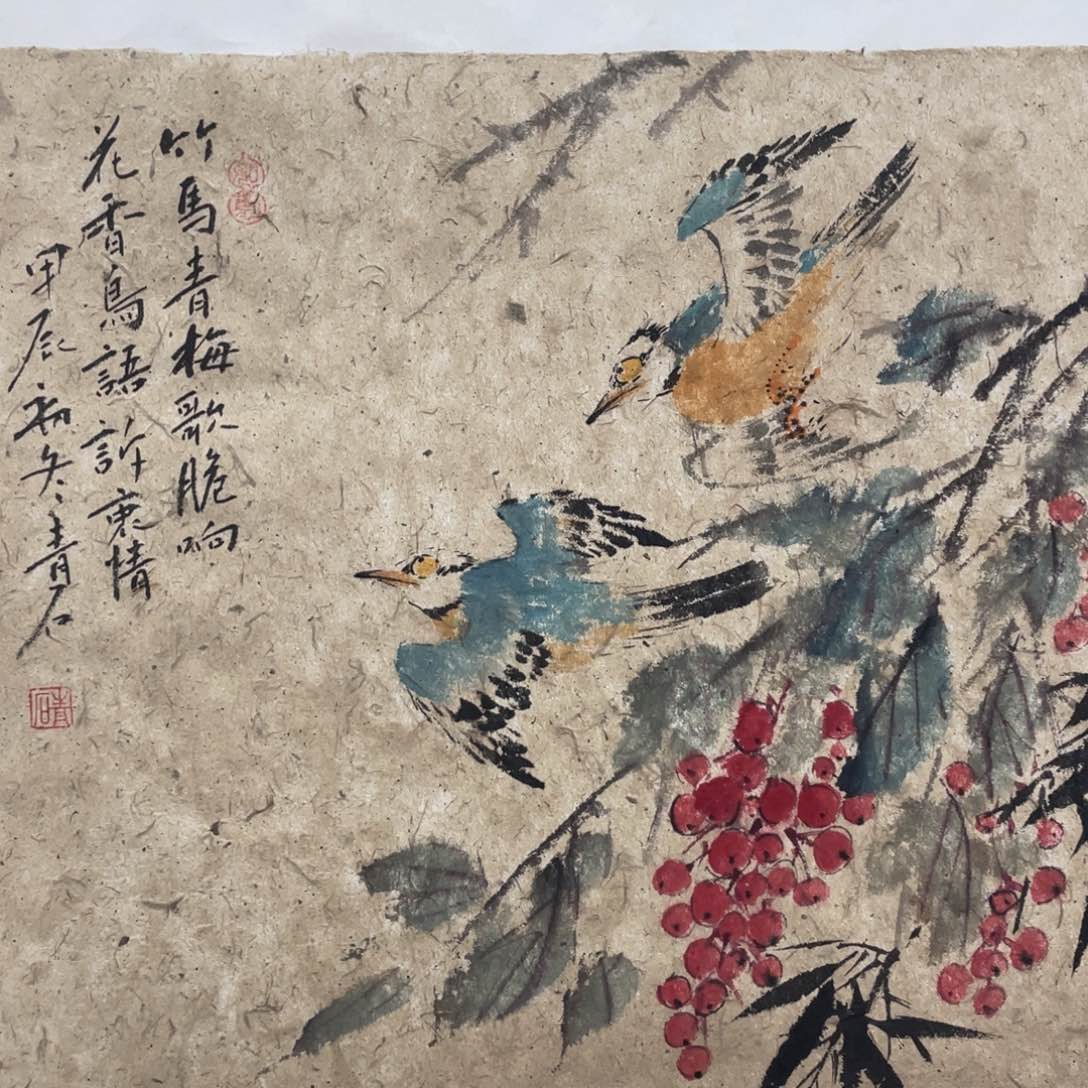 竹馬青梅歌脆响
花香鳥語訴衷情
甲辰初冬青石
青石